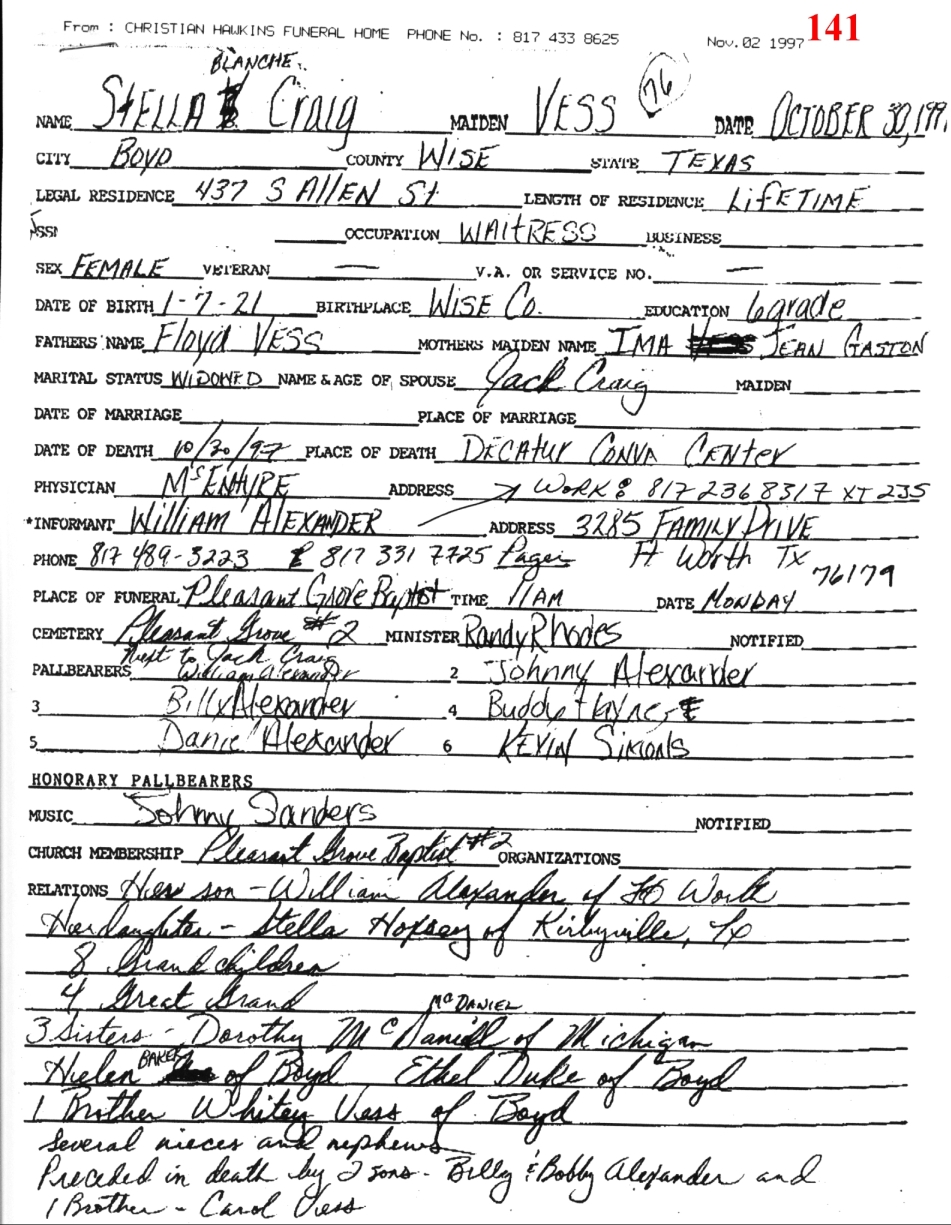 From : CHRISTIAN HAWKINS FUNERAL HOME PHONE No. : 817 433 8625 Nov. 02 1997 141
BLANCHE
NAME STELLA Craig MAIDEN VESS 76 DATE OCTOBER 30, 199
CITY BOYD COUNTY WISE STATE TEXAS
LEGAL RESIDENCE 437 S AllEN St LENGTH OF RESIDENCE LifETIME
SSN OCCUPATION WAITRESS BUSINESS
SEX FEMALE VETERAN — V.A. OR SERVICE NO. —
DATE OF BIRTH 1-7-21 BIRTHPLACE WISE Co. EDUCATION 6 grade
FATHERS NAME Floyd VESS MOTHERS MAIDEN NAME IMA JEAN GASTON
MARITAL STATUS WIDOWED NAME & AGE OF SPOUSE Jack Craig MAIDEN
DATE OF MARRIAGE PLACE OF MARRIAGE
DATE OF DEATH 10/30/97 PLACE OF DEATH DECATUR CONVA CENTER
PHYSICIAN McENTYRE ADDRESS WORK: 817 236 8317 XT 235
*INFORMANT William ALEXANDER ADDRESS 3285 FAMILY DRIVE
PHONE 817 489-3223 817 331 7725 Pager Ft Worth TX
76179
PLACE OF FUNERAL Pleasant Grove Baptist TIME 11AM DATE MONDAY
CEMETERY Pleasant Grove #2 MINISTER Randy Rhodes NOTIFIED
Next to Jack Craig
PALLBEARERS William Alexander 2 Johnny Alexander
3 Billy Alexander 4 Buddy
5 Alexander 6 KEVIN Simons
HONORARY PALLBEARERS
MUSIC Johnny Sanders NOTIFIED
CHURCH MEMBERSHIP Pleasant Grove Baptist #2 ORGANIZATIONS
RELATIONS son - William Alexander of Ft Worth
Her daughter - Stella Hopsey of Kirbyville, Tx
8 Grand children
4 Great Grand
McDANIEL
3 Sisters - Dorothy McDaniell of Michigan
BAKER
Helen of Boyd Ethel Duke of Boyd
1 Brother Whitey Vess of Boyd
several nieces and nephews
Preceded in death by 2 sons - Billy & Bobby Alexander and
1 Brother - Carol Vess